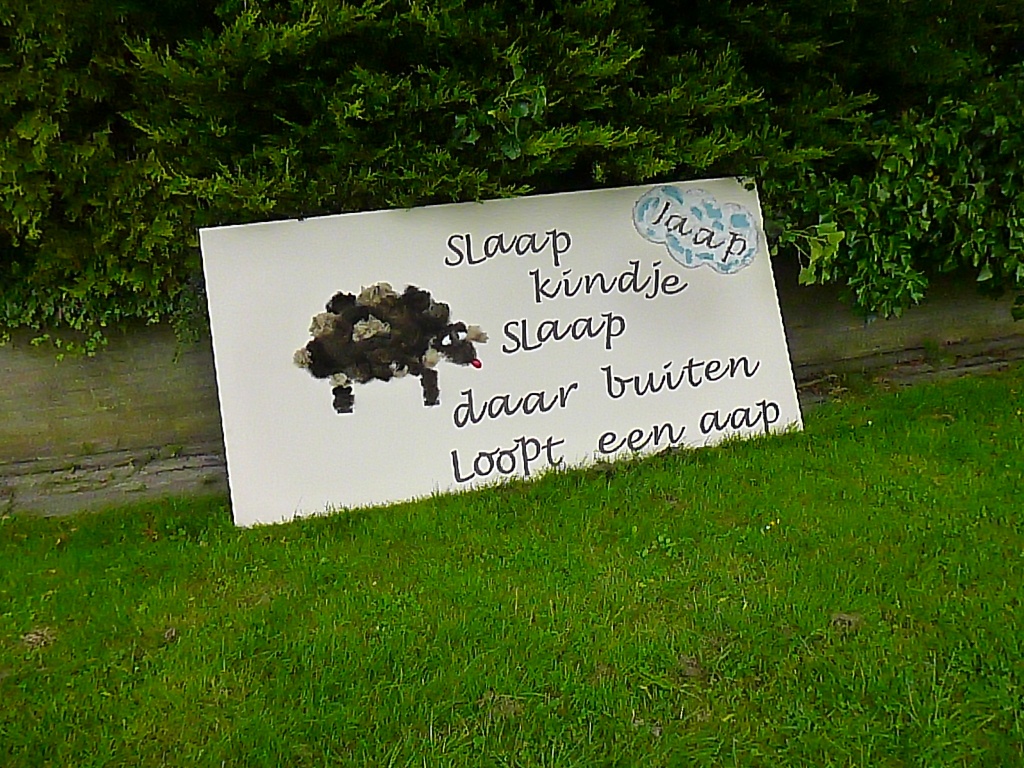 Jaap
SLaap
kindje
SLaap
daar buiten
Loopt een aap